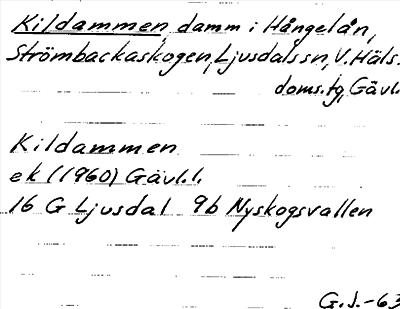 Kildammen, damm i Hångelån,
Strömbackaskogen, Ljusdals sn, V. Häls.
doms.tg, Gävl.
Kildammen
ek (1960) Gävl.l.
16 G Ljusdal 9b Nyskogsvallen
G.J.-63